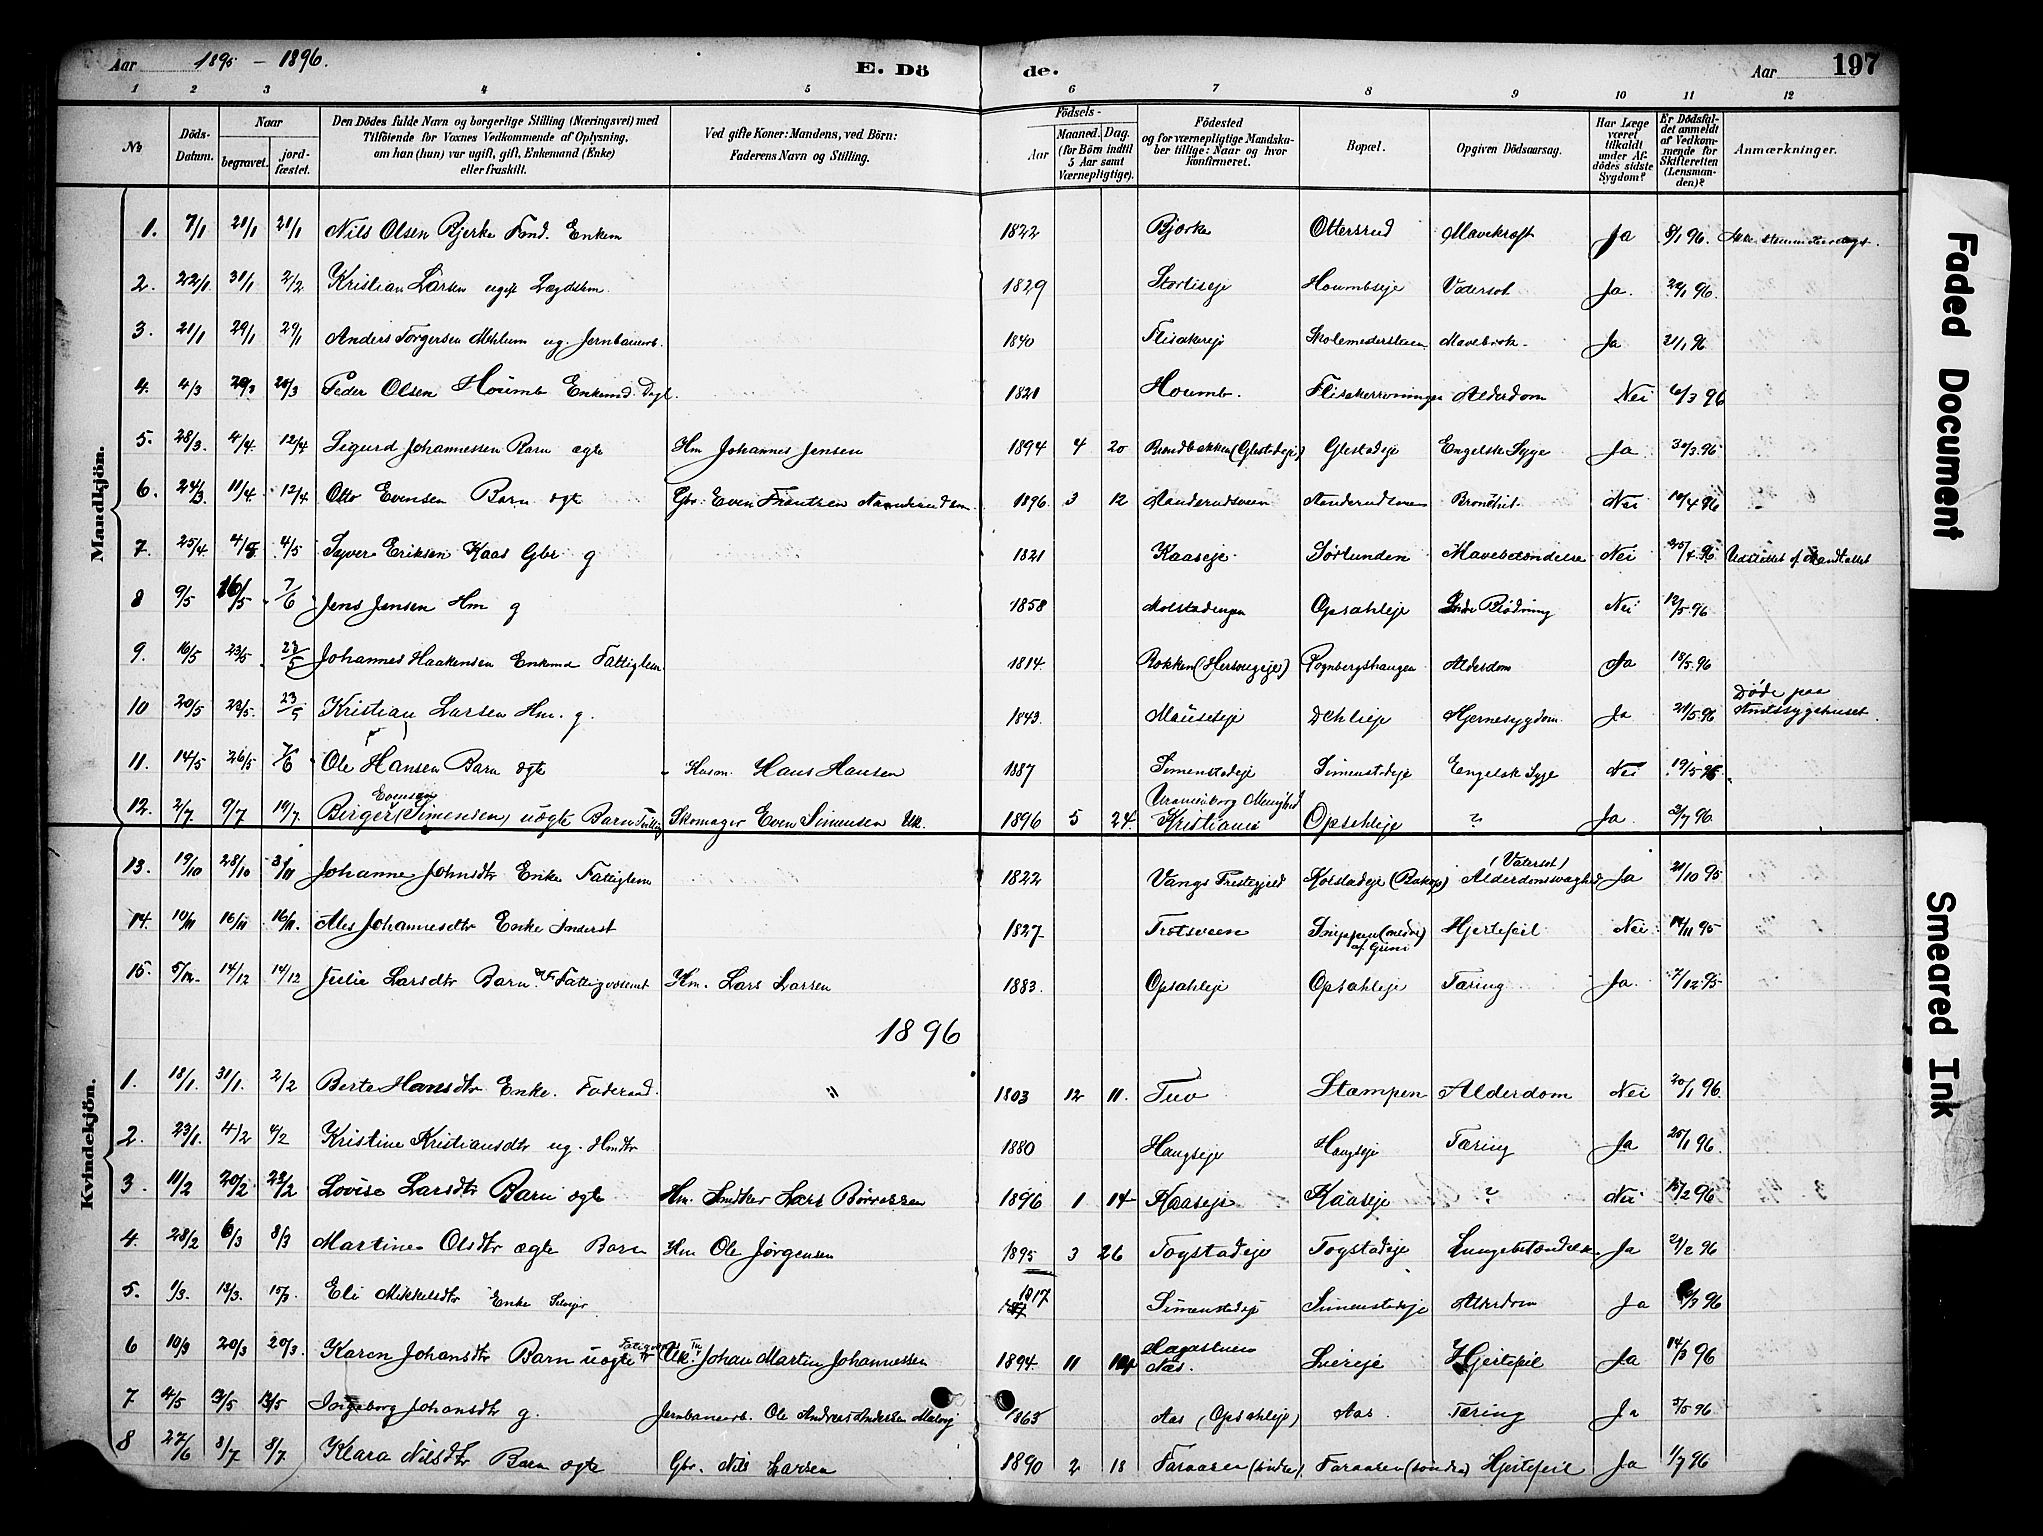 Aar 1895 – 1896. E. Dö de. Aar 197
1 2 3 4 5 6 7 8 9 10 11 12
№ Döds-Datum. Naar begravet. jordfæstet. Den Dödes fulde Navn og borgerlige Stilling (Næringsvei) med Tilföiende for Voxnes Vedkommende af Oplysning, om han (hun) var ugift, gift, Enkemand (Enke) eller fraskilt. Ved gifte Koner: Mandens, ved Börn: Faderens Navn og Stilling. Födsels- Aar Maaned. Dag. (for Börn indtil 5 Aar samt Værnepligtige). Födested og for værnepligtige Mandskaber tillige: Naar og hvor konfirmeret. Bopæl. Opgiven Dödsaarsag. Har Læge været tilkaldt under Afdödes sidste Sygdom? Er Dödsfaldet anmeldt af Vedkommende for Skifteretten (Lensmanden)? Anmærkninger.
Mandkjön.
1. 7/1 21/1 21/1 Nils Olsen Bjerke Fod. Enkem 1822 Bjerke Ottersrud Mavekræft Ja 8/1 96.
2. 22/1 31/1 2/2 Kristian Larsen ugift Lægdslem 1829 Houmbseje Vatersot Ja. 22/1 96.
3. 21/1 29/1 29/1 Anders Torgersen Mehlum ug. Jernbanearb. 1840 Flisakereje Mavebrok. Ja 21/1 96
4. 4/3 20/3 20/3 Peder Olsen Houmb Enkemd. Dagl. 1821 Houmb. Alderdom Nei 6/3 96
5. 28/3. 4/4. 12/4 Sigurd Johannessen Barn ægte Hm Johannes Jensen 1894 4 20 Brændbakken (Glestadeje) Glestadeje Engelsk Syge Ja 30/3.96
6. 24/3 11/4. 12/4 Otto Evensen Barn ægte Gbr. Even Frantzen 1896 3 12 Bronchit. Nei 10/4 96
7. 25/4 4/5 4/5 Syver Eriksen Kaas Gbr g 1821 Kaaseje. Sørlunden Mavebetændelse Nei 25/4.96. Udslettet af Mandtallet
8 9/5 16/5 7/6 Jens Jensen Hm g 1858 Molstadengen Opsahleje Indre Blødning Nei 12/5.96
9. 16/5 23/5 23/5 Johannes Haakensen Enkemd Fattiglem 1814. Bakken (Hersougeje) Pognbergshaugen Alderdom Ja 18/5.96
10 20/5 23/5. 23/5 Kristian Larsen Hm. g. 1843. Mauseteje Dehlieje Hjernesygdom Ja 21/5.96 Døde paa Amtssygehuset.
11. 14/5 26/5 7/6 Ole Hansen Barn ægte Husm. Hans Hansen 1887 Simenstadeje Simenstadeje Engelsk Syge Nei 19/5 96.
12. 2/7 9/7 19/7 Birger Evensen (Simensen) uægte Barn Tvilling Skomager Even Simensen Uk. 1896 5 24. Uranienborg Menighed Kristiania Opsahleje ? Ja. 3/7 96.
Kvindekjön.
13. 19/10 28/10 3/11 Johanne Johnsdtr Enke Fattiglem 1822 Vangs Præstegjeld Korstadeje (Bakop) (Vatersot) Alderdomssvaghed Ja 21/10 95
14. 10/11 16/11 16/11. Ales Johannesdtr Enke Inderst 1827 Trotsveen Snippen (nedre) af Grini Hjertefeil Nei 14/11 95
15. 5/12. 14/12 14/12 Julie Larsdtr Barn af Fattigvæsenet Hm. Lars Larsen 1883. Opsahleje Opsahleje Tæring Ja. 7/12 95
1896
1. 18/1. 31/1. 2/2 Berte Hansdtr Enke. Føderaad. " 1803 12 11. Tuv Stampen Alderdom Nei 20/1 96.
2. 23/1. 4/2 4/2 Kristine Kristiansdtr ug. Hmdtr 1880 Haugseje Haugseje Tæring Ja 25/1 96.
3. 11/2 20/2 23/2 Lovise Larsdtr Barn ægte Hm. Snedker Lars Børresen 1896 1 14 Kaaseje Kaaseje ? Nei 15/2 96
4. 28/2 6/3 8/3 Martine Olsdtr ægte Barn Hm Ole Jørgensen 1895 3 26 Togstadeje Togstadeje Lungebetændelse Ja 2/2 96
5. 1/3. 13/3. 15/3 Eli Mikkelsdtr Enke Selvejer 1817 Simenstadeje Simenstadeje Alderdom Ja 6/3 96
6 10/3 20/3 20/3. Karen Johansdtr Barn uægte Fattigvæs. Uk. Tm Johan Martin Johannessen 1894. 11 14 Næs. Liereje Hjertefeil Ja 14/3 96
7 4/5 13/5 13/5 Ingeborg Johansdtr g. Jernbanearb. Ole Andreas Andersen 1863 Aas (Opsahleje) Aas. Tæring Ja 5/5 96
8 27/6 8/7 8/7. Klara Nilsdtr Barn ægte Gbr. Nils Larsen 1890 2 18 Faraasen (søndre), Faraasen (søndre) Hjertefeil Ja 1/7 96
Faded Document
Smeared Ink